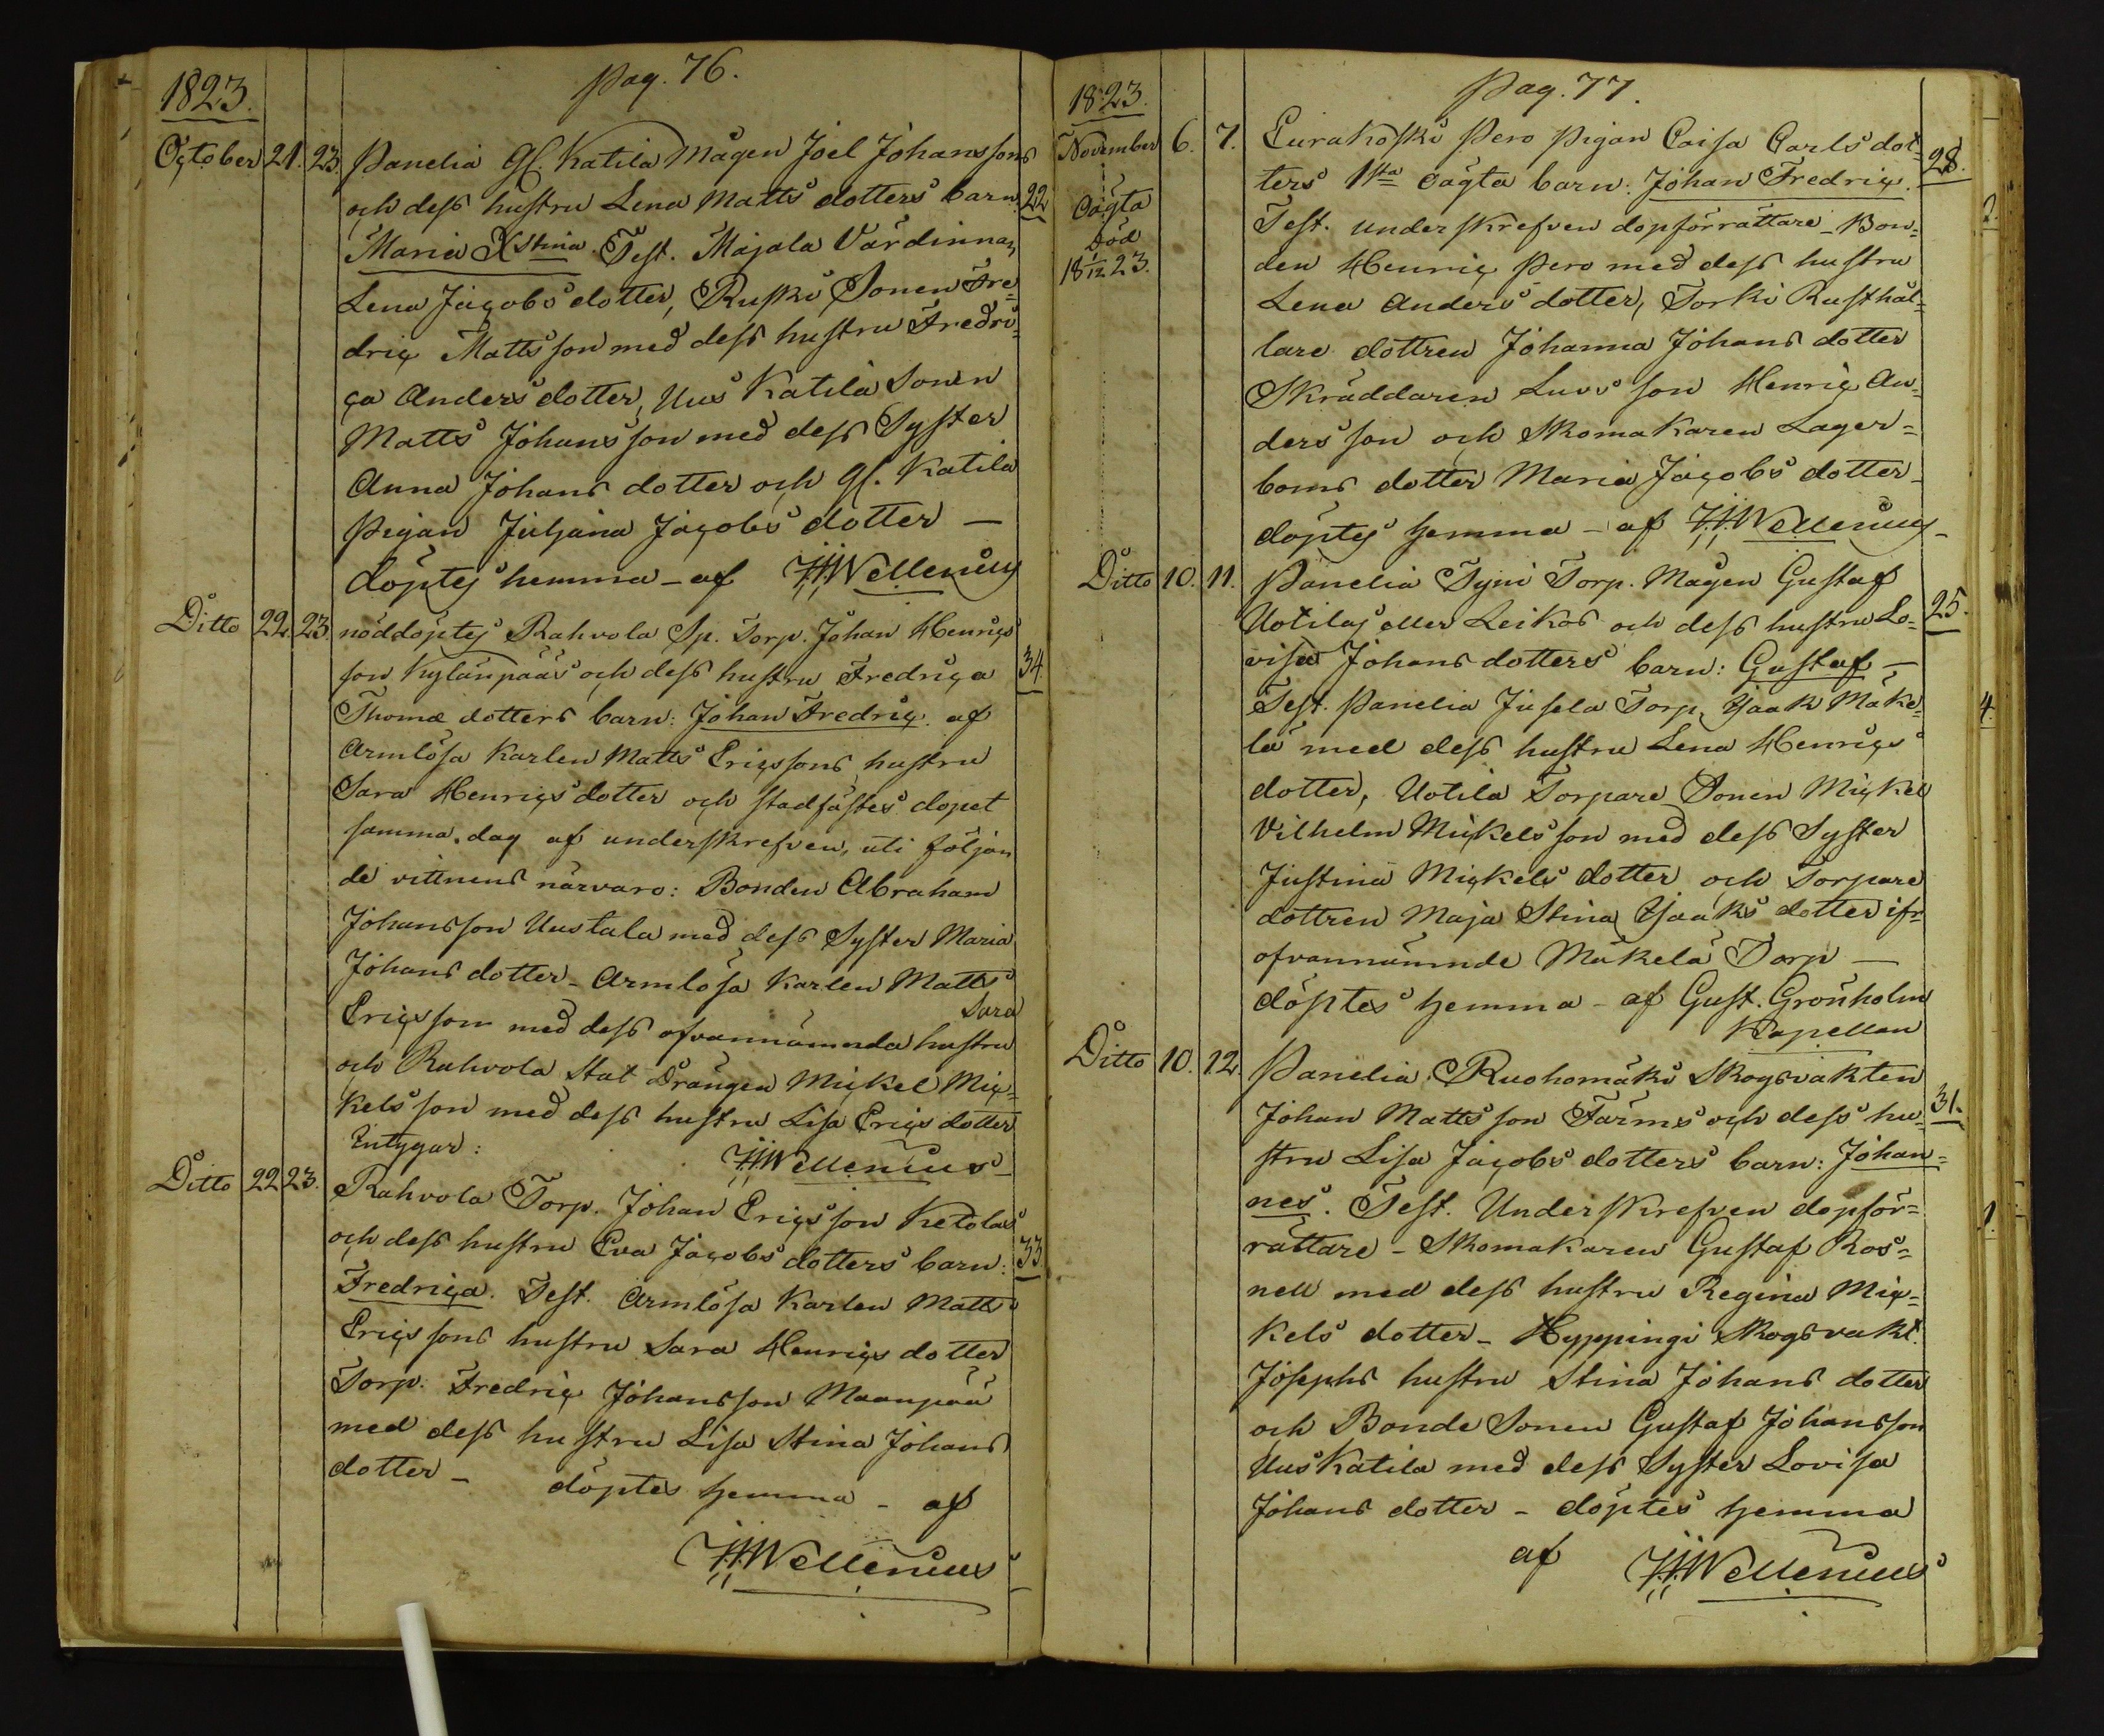 Pag. 76.
1823.
October 21. 23. Panelia Gl. Katila Mågen Joel Johanssons
och dess hustru Lena Matts dotters barn 22
Maria Xstina. Test. Majala Värdinnan
Lena Jacobs dotter, Ruski Sonen Fre=
dric Matts son med dess hustru Fredri=
ca Anders dotter, Uus Katila Sonen
Matts Johans son med dess Syster
Anna Johans dotter och Gl. Katila
Pigan Juljana Jacobs dotter —
döptes hemma - af H.H. Wellenius
Ditto 22. 23. nöddöptes Rahvola Sp. Torp. Johan Henrics
son Kylänpääs och dess hustru Fredrica 34.
Thomæ dotters barn: Johan Fredric. af
Armlösa Karlen Matts Ericssons hustru
Sara Henrics dotter och stadfästes dopet
samma dag af underskrefven, uti följan
de vittnens närvaro: Bonden Abraham
Johansson Uustala med dess Syster Maria
Johans dotter - Armlösa Karlen Matts
Ericsson med dess ofvannämnda hustru Sara
och Rahvola Stat Drängen Mickel Mic=
kels son med dess hustru Lisa Erics dotter
Intygar: H.H. Wellenius
Ditto 22 23. Rahvola Torp. Johan Erics son Ketolas
och dess hustru Eva Jacobs dotters barn: 33.
Fredrica. Test. Armlösa Karlen Matts
Ericssons hustru Sara Henrics dotter
Torp. Fredric Johansson Maanpää
med dess hustru Lisa Stina Johans
dotter - döptes hemma - af
H.H. Wellenius
Pag. 77.
1823.
November 6. 7. Eurakoski Pero Pigan Caisa Carls dot=
ters 1sta oägta barn: Johan Fredric. 28.
Oägta
Död
18 1/12 23.
Test. underskrefven dopförrättare - Bon=
den Henric Pero med dess hustru
Lena Anders dotter, Torki Rusthål=
lare dottren Johanna Johans dotter
Skräddaren Luvs son Henric An=
ders son och Skomakaren Lager=
boms dotter Maria Jacobs dotter
döptes hemma - af H.H. Wellenius
Ditto 10. 11. Panelia Tyni Torp. Mågen Gustaf
Uotilas eller Leikos och dess hustru Lo= 25.
visa Johans dotters barn: Gustaf —
Test. Panelia Jusela Torp. Isaak Mäke=
lä med dess hustru Lena Henrics
dotter, Uotila Torpare Sonen Mickel
Vilhelm Mickels son med dess Syster
Justina Mickels dotter och Torpare
dottren Maja Stina Isaaks dotter ifr
ofvannämnde Mäkelä Torp —
döptes hemma - af Gust. Grönholm
Kapellan
Ditto 10. 12. Panelia Ruohomäki Skogsvakten
Johan Matts son Färms och dess hu= 31.
stru Lisa Jacobs dotters barn: Johan=
nes. Test. Underskrefven dopför=
rättare - Skomakaren Gustaf Ros=
nell med dess hustru Regina Mic=
kels dotter - Hyppingi Skogsvakt.
Josephs hustru Stina Johans dotter
och Bonde Sonen Gustaf Johansson
Uus Katila med dess Syster Lovisa
Johans dotter - döptes hemma
af H.H. Wellenius